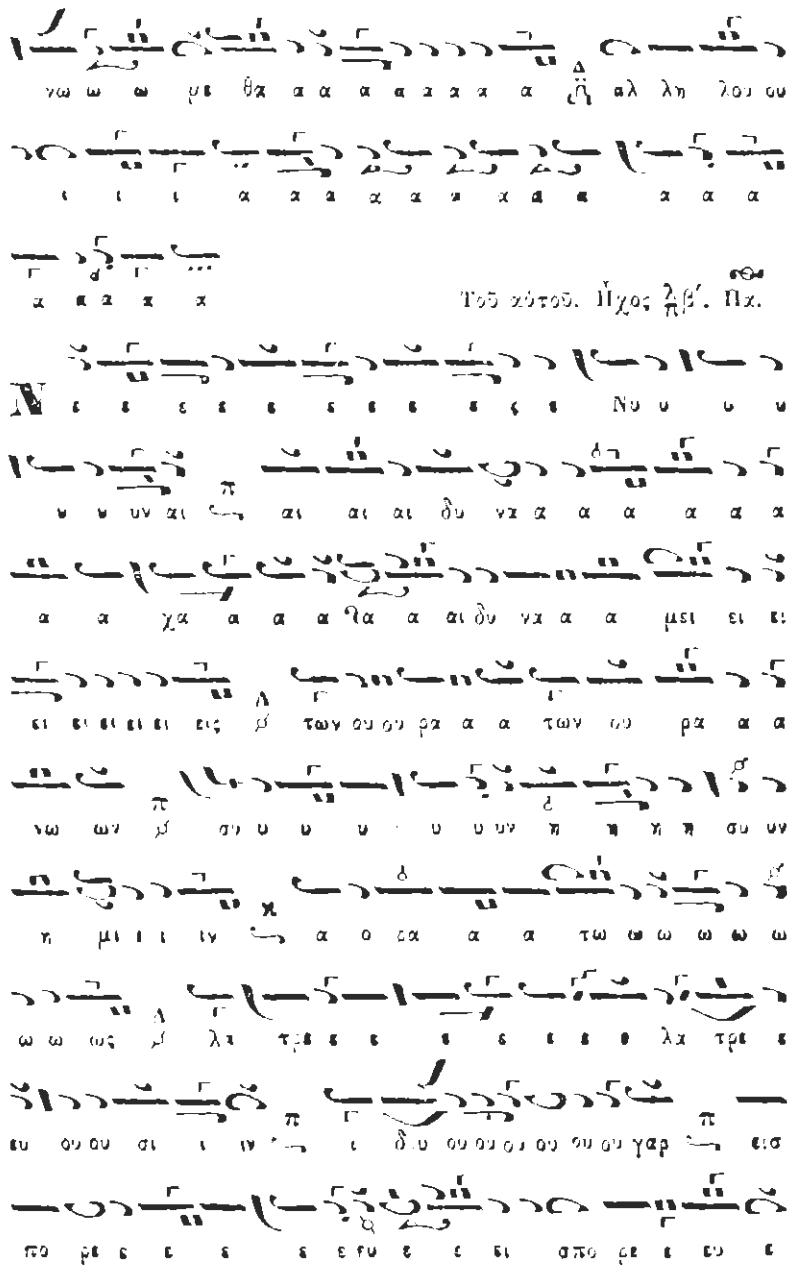 νω ω ω με θα α α α α α α α α Δ αλ λη λου ου
ι ι ι α α α α α α α α α α α α
α α α α α
Τοῦ αὐτοῦ. Ἦχος λ/π β′. Πα.
Ν ε ε ε ε ε ε ε ε ε ς ε Νυ υ υ υ
υ υ υν αι π αι αι αι δυ να α α α α α α
α α χα α α α λα α αι δυ να α α μει ει ει
ει ει ει ει ει εις Δ των ου ου ρα α α των ου ρα α α
νω ων π συ υ υ υ υ υ υν η η η η συ υν
η μι ι ι ιν κ α ο ρα α α τω ω ω ω ω ω
ω ω ως Δ λα τρε ε ε ε ε ε ε ε λα τρε ε
ευ ου ου σι ι ιν π ι δου ου ου ου ου ου ου γαρ π εισ
πο ρε ε ε ε ε ε ευ ε ε ει σπο ρε ε ευ ε